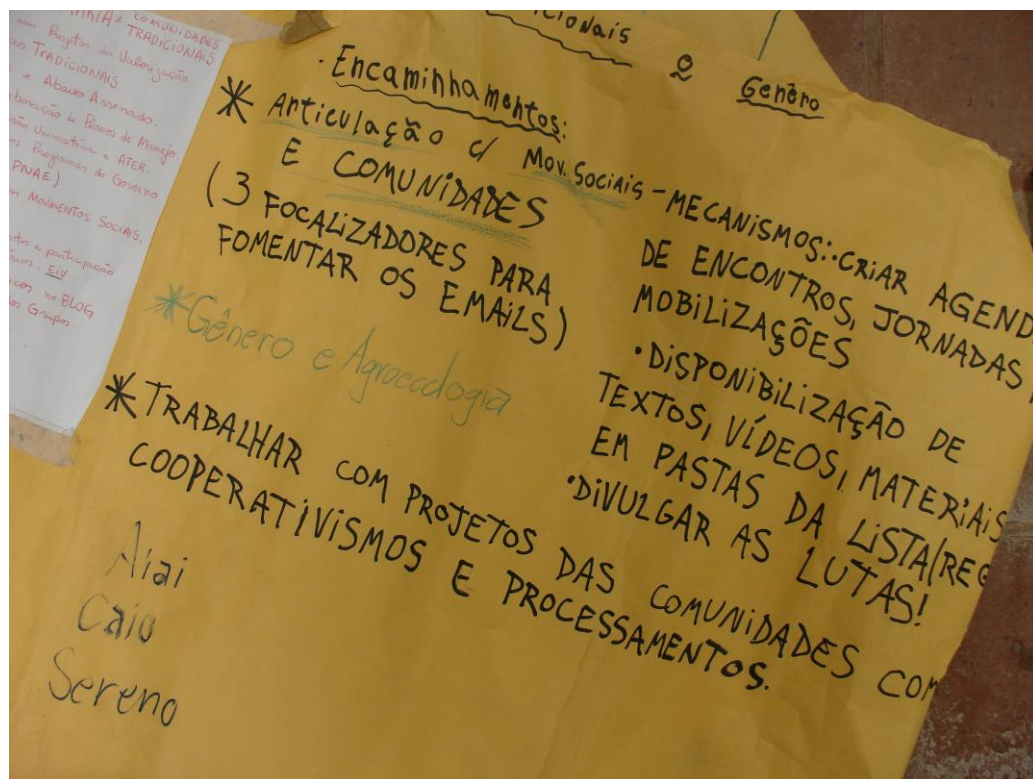 COMUNIDADES
TRADICIONAIS
em Projetos da Valorização
TRADICIONAIS
e Abaixo Assinado.
de Planos de Manejo.
Universitária e ATER.
Programas do Governo
PNAE)
MOVIMENTOS SOCIAIS,
e participação
EIV
no BLOG
Grupos.
Gênero
· Encaminhamentos:
* Articulação c/ Mov. Sociais
E COMUNIDADES
(3 FOCALIZADORES PARA
FOMENTAR OS EMAILS)
- MECANISMOS: · CRIAR AGEND
DE ENCONTROS, JORNADAS
MOBILIZAÇÕES
· DISPONIBILIZAÇÃO DE
TEXTOS, VÍDEOS, MATERIAIS
EM PASTAS DA LISTA/REG
· DIVULGAR AS LUTAS!
* Gênero e Agroecologia
* TRABALHAR COM PROJETOS DAS COMUNIDADES COM
COOPERATIVISMOS E PROCESSAMENTOS.
Aiai
Caio
Sereno